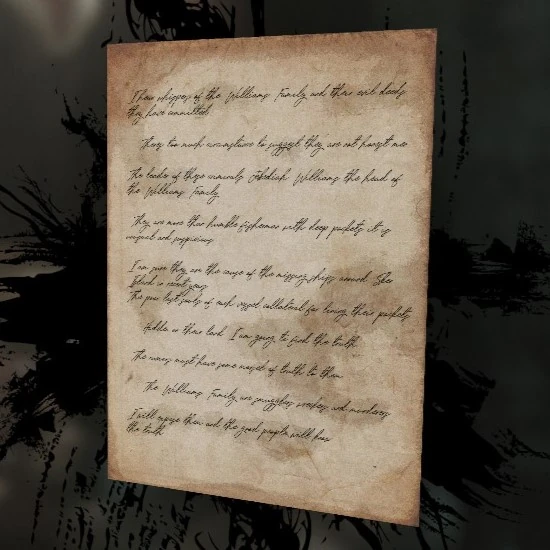 I hear whispers of the Williams Family and their evil deeds
they have committed
Theres too much circumstance to suggest they are not honest men
The leader of these criminals Obediah Williams the head of
the Williams Family
They are more than humble fishermen with deep pockets it is
unusual and suspicious
I am sure they are the cause of the missing ships around
Island in recent years
The poor lost souls of each vessel collateral for lining their pockets
Hidden in there land I am going to find the truth
The rumors must have some morsel of truth to them
The Williams Family are smugglers wreckers and murderers
I will expose them and the good people will hear
the truth